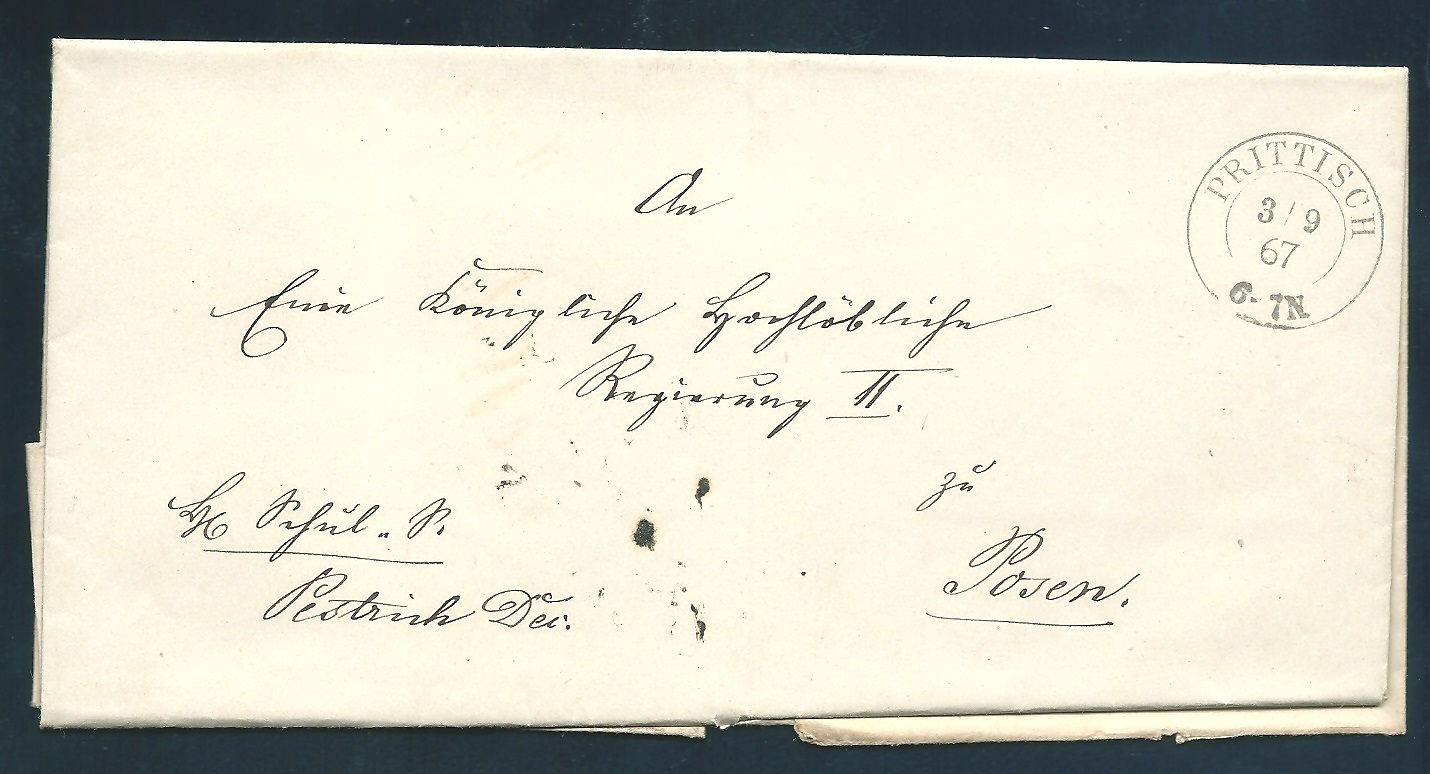 PRITTISCH
3/9
67
6-7N
An
Eine Königliche Hochlöbliche
Regierung II.
zu
Posen.
Schul-S.
Dec.